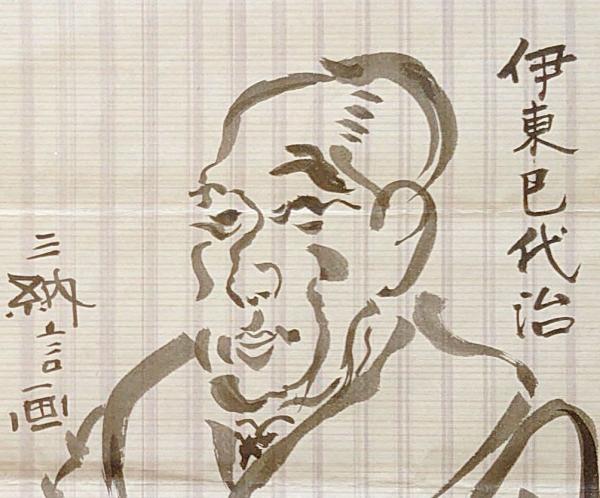 伊東巳代治
三納言画